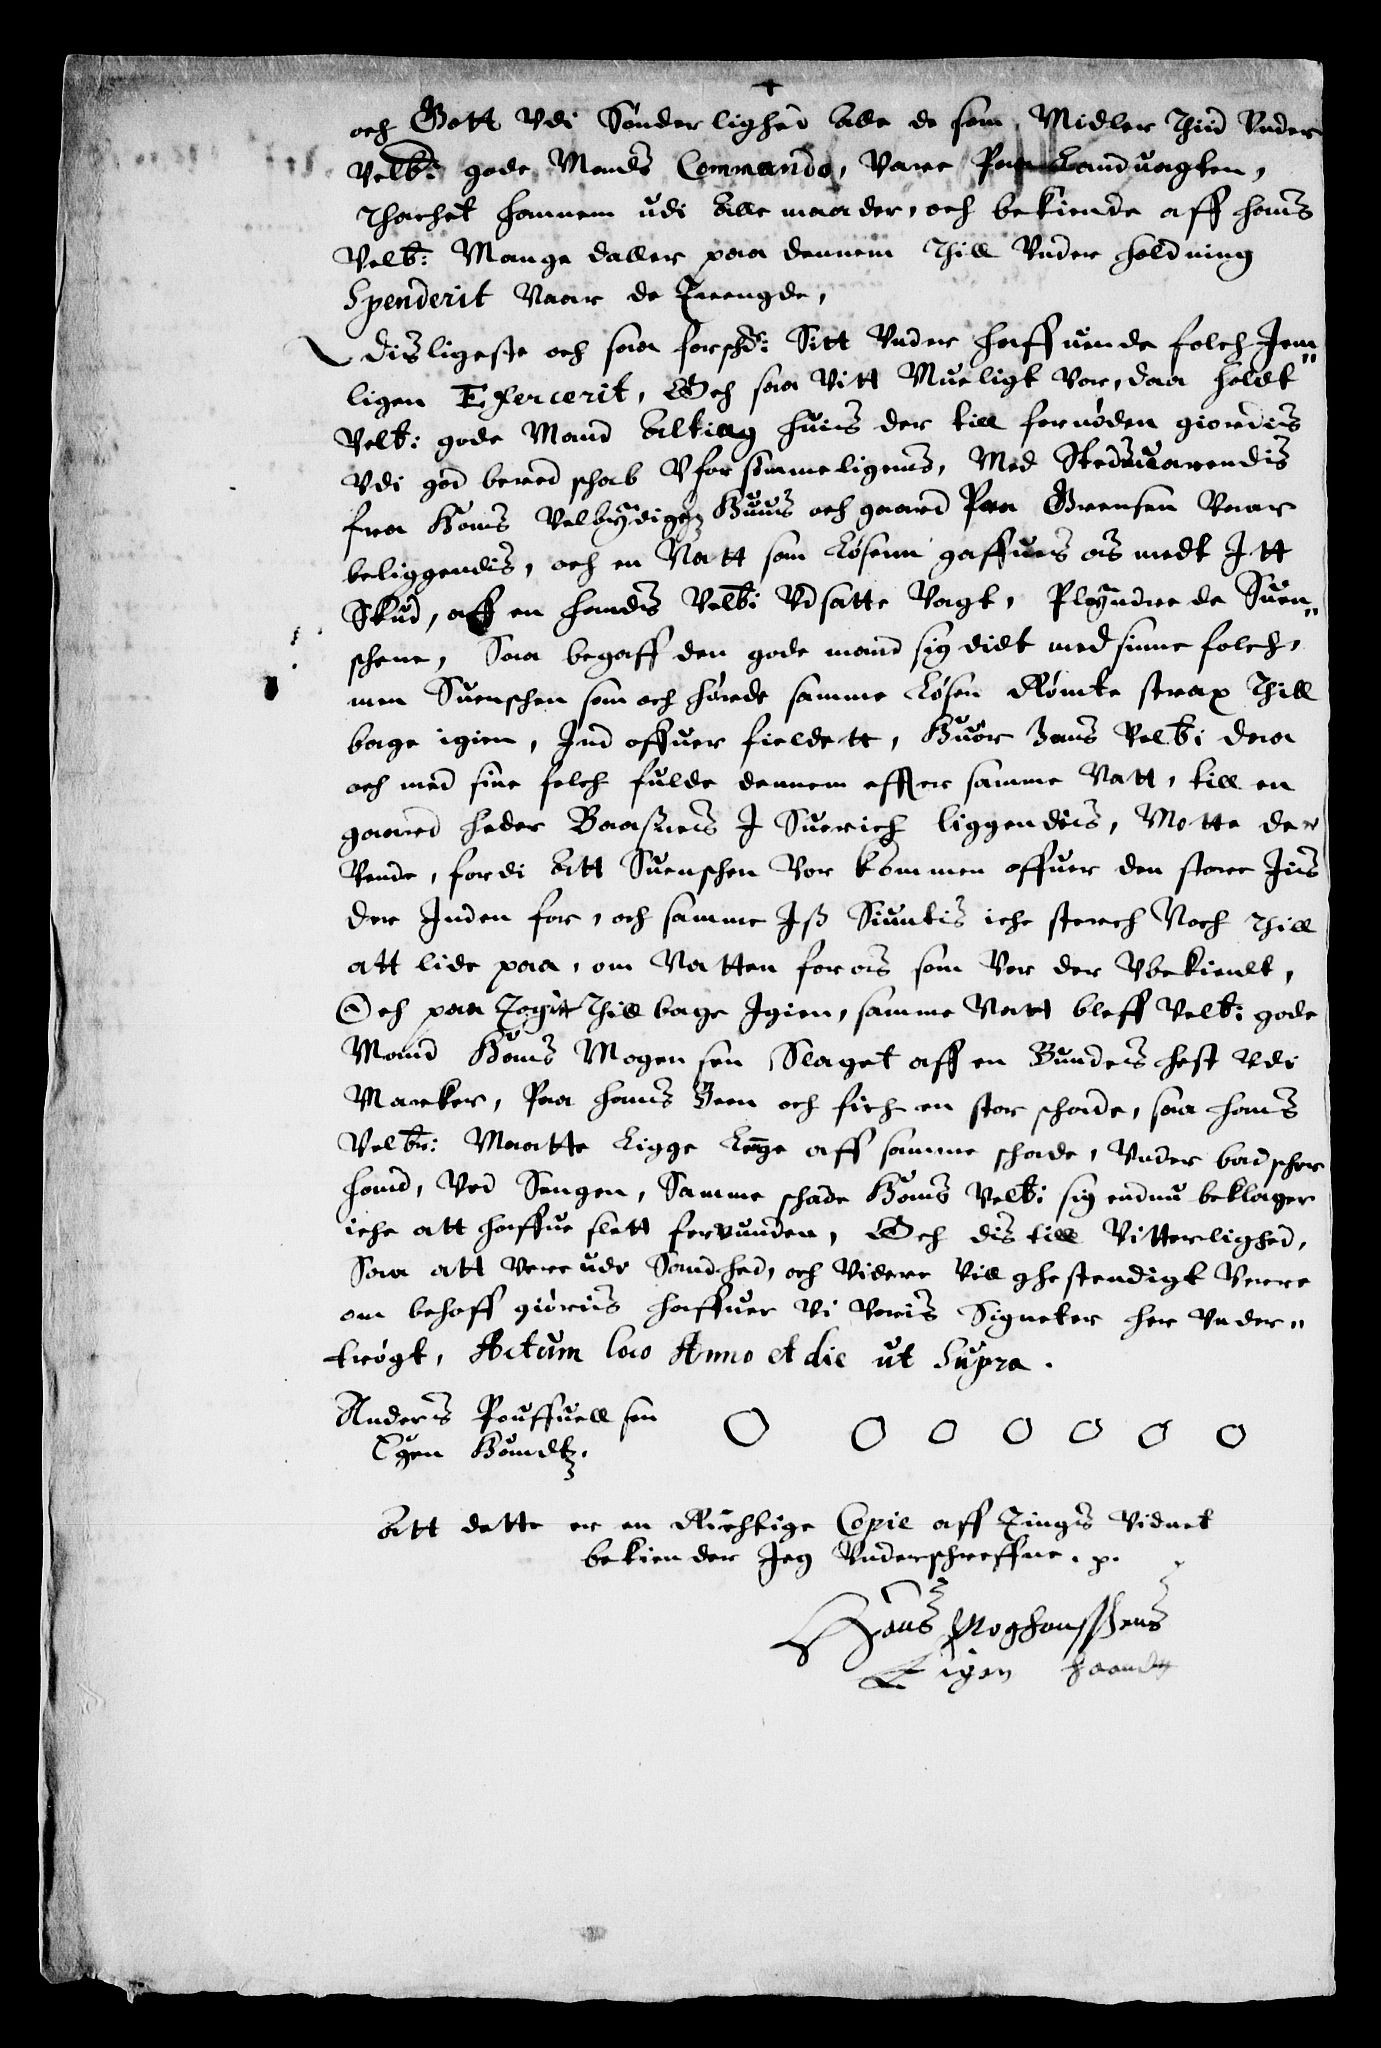 och Gott Vdi Sønderlighed Alle de som Midler Thid Vnder
Velb: gode Mands Commando, Vare Paa Landvagten,
Thachet hannem udi Alle maader, och bekiende aff hans
Velb: Mange daller paa dennem Thill Vnder holdning
Spenderit Naar de Trengde,
disligeste och saa forschd: Sitt Vnder haffuende folch Jem"
ligen Exercerit, Och saa Vitt Mueligt Var, daa holdt
Velb: gode Mand Alting huis der till fornøden giordis
Vdi god beredschab Vforsømmeligens, Med Stedzuarendis
fra Hans Velbyrdigz Huus och gaard Paa Grensen Vaar
beliggendis, och en Natt som Løsenn gaffues os medt Itt
Skud, aff en hands Velb: Vdsatte Vagt, Plyndrede Suen"
schene, Saa begaff den gode mand sig didt med sinne folch,
men Suenschen som och hørede samme Løsen Rømte strax Thill
bage igien, Ind offuer fieldett, Huor hans Velb: daa
och med sine folch fulde dennem effter samme Natt, till en
gaard heder Baaßnes I Suerich liggendis, Motte der
Vende, fordi Att Suenschen Var kommen offuer den store Jis
der Inden for, och samme Jß Siuntis iche sterch Noch Thill
att lide paa, om Natten for os som Var der Vbekiendt,
Och paa Togit Thillbage Igien, samme Natt bleff Velb: gode
Mand Hans Mogensen Slaget aff en Bundes hest Vdi
Marker, Paa hans Been och fich en stor schade, saa hans
Velb: Maatte Ligge Lenge aff samme schade, Vnder badscher
hand, Ved Sengen, Samme schade Hans Velb: sig endnu beklager
iche att haffue slett forvunden, Och dis till Vitterlighed,
Saa att Vere udi Sandhed, och Videre Vill ghestendigt Verre
om behoff giøris haffuer Vi Voris Signeter her Vnder"
trøgt, Actum loco Anno et die ut Supra.
Anders Pouffuellsen
Egen Haandtz.
Att dette er en Richtige Copie aff Tings Vidnet
bekiender Jeg Vnderschreffne. p.
Hans Moghensßens
Eigen haandt